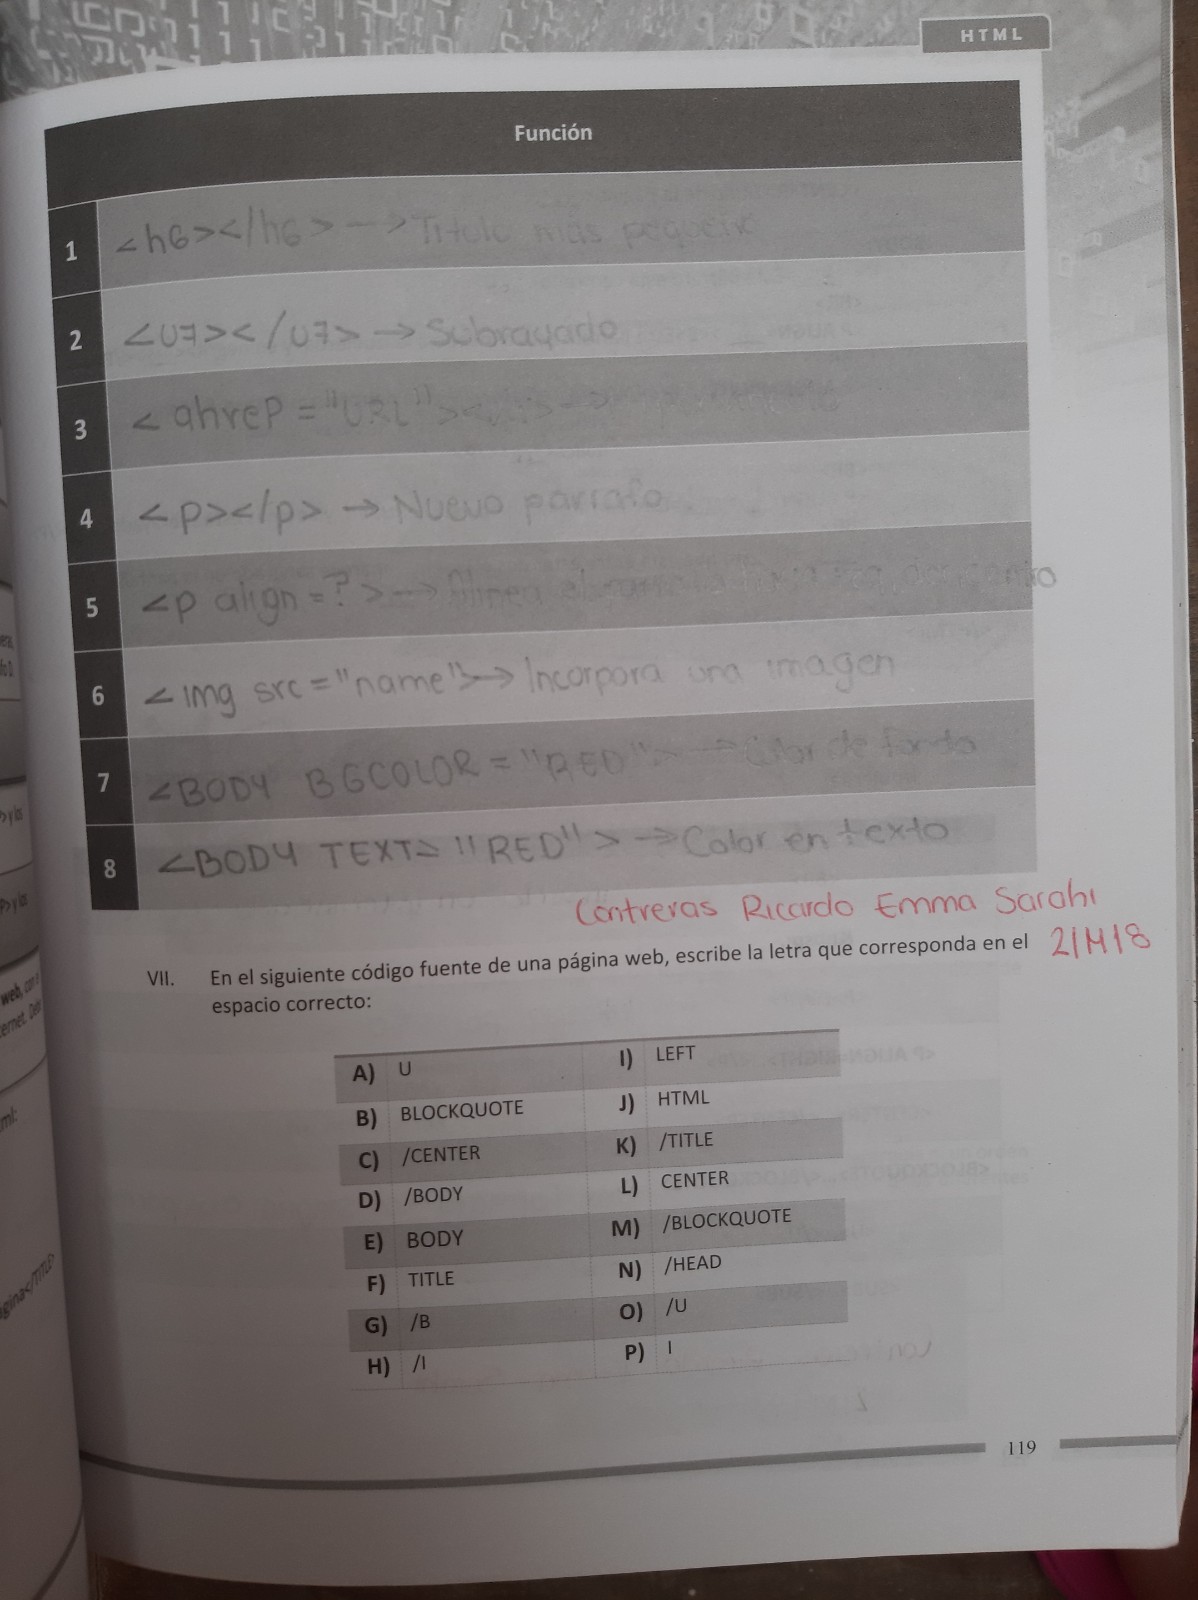 HTML
Función
1 <h6></h6> --> Titulo más pequeño
2 <U7></U7> → Subrayado
3 < ahreP = "URL">
4 <p></p> → Nuevo párrafo
5 <p align = ? > → Alinea el
6 < img src = "name"> → Incorpora una imagen
7 <BODY BGCOLOR = "RED"> → Color de fondo
8 <BODY TEXT= "RED" > → Color en texto
Contreras Ricardo Emma Sarahi
VII. En el siguiente código fuente de una página web, escribe la letra que corresponda en el 2/M/8
espacio correcto:
A) U I) LEFT
B) BLOCKQUOTE J) HTML
C) /CENTER K) /TITLE
D) /BODY L) CENTER
E) BODY M) /BLOCKQUOTE
F) TITLE N) /HEAD
G) /B O) /U
H) /I P) I
119